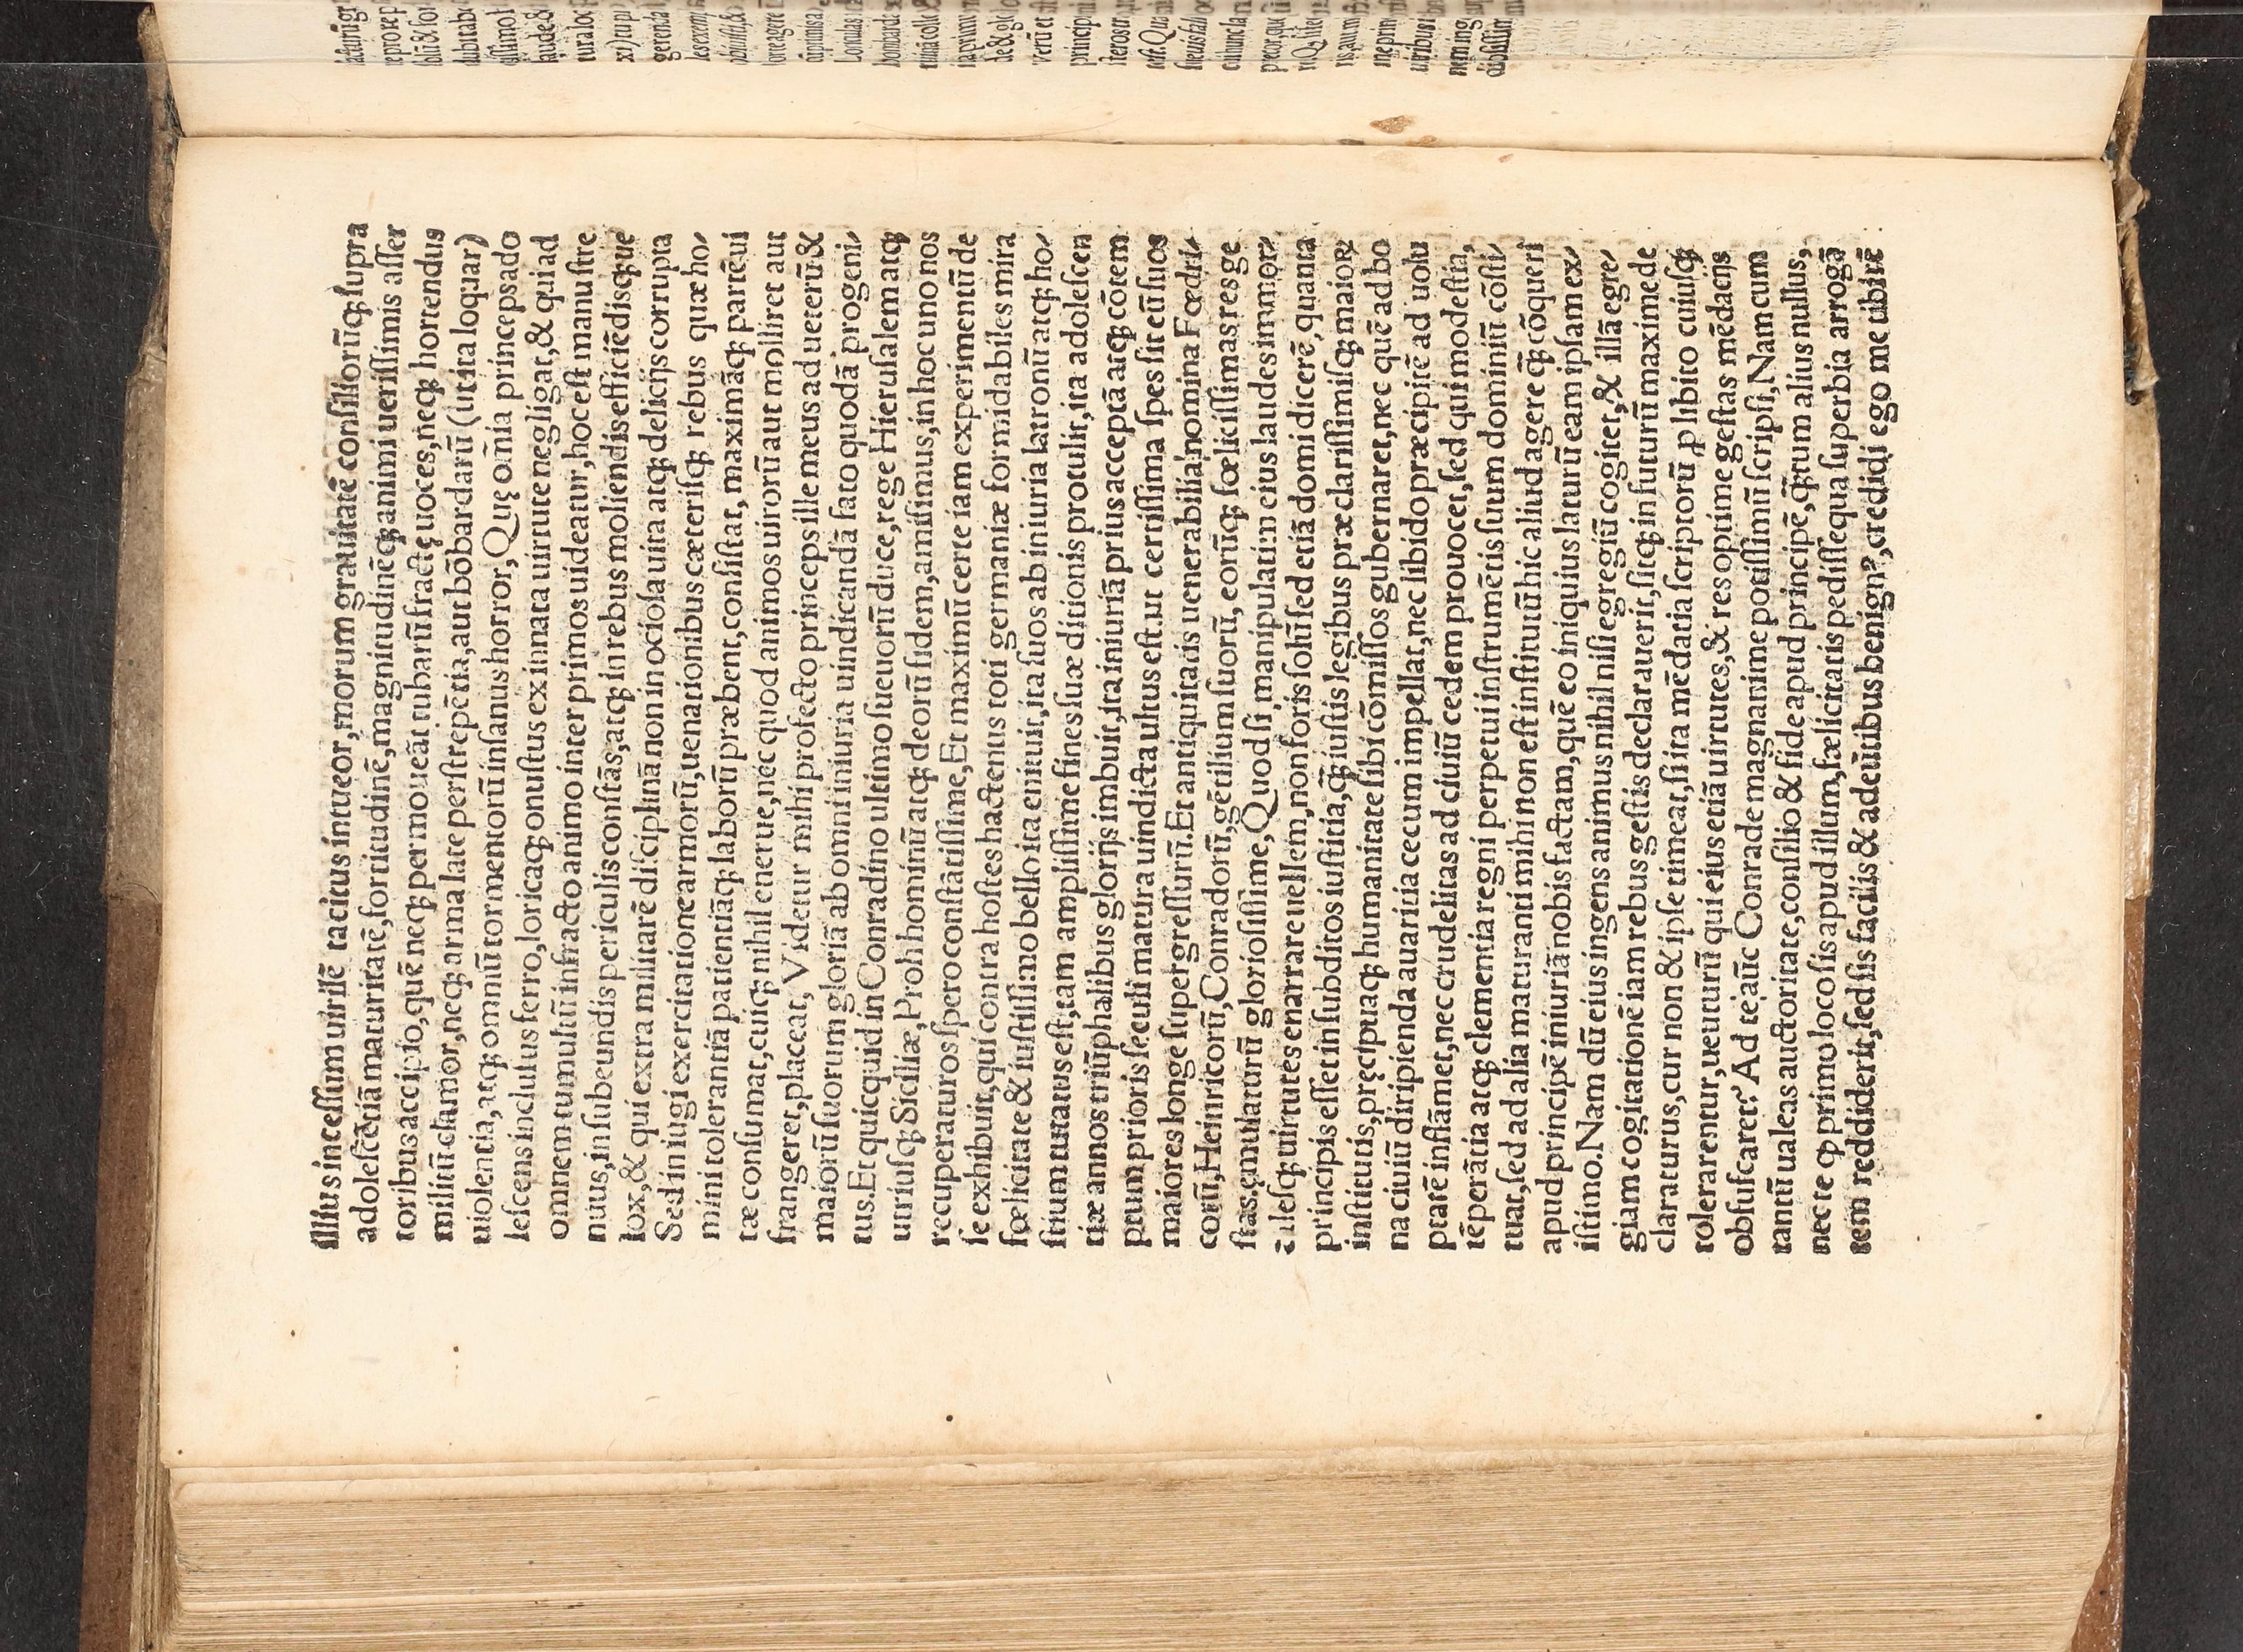 illius incessum uirilē tacitus intueor, morum grauitatē consiliorūq; supra
adolescētiā maturitatē, fortitudinē, magnitudinēq; animi uerissimis asser
toribus accipio, quē neq; permoueāt tubarū fractę uoces, neq; horrendus
militū clamor, neq; arma late perstrepētia, aut bōbardarū (ut ita loquar)
uiolentia, atq; omniū tormentorū insanus horror, Quę oīa princeps ado
lescens inclusus ferro, loricaq; onustus ex innata uirtute negligat, & qui ad
omnem tumultū infracto animo inter primos uideatur, hoc est manu stre
nuus, in subeundis periculis constās, atq; in rebus moliendis efficiēdisque
uox, & qui extra militarē disciplinā non in ociosa uita atq; delicijs corrupta
Sed in iugi exercitatione armorū, uenationibus cæterisq; rebus quæ ho⸗
mini tolerantiā patientiāq; laborū præbent, consistat, maximāq; partē ui
tæ consumat, cuiq; nihil enerue, nec quod animos uirorū aut molliret aut
frangeret, placeat, Videtur mihi profecto princeps ille meus ad ueterū &
maiorū suorum gloriā ab omni iniuria uindicandā fato quodā progeni⸗
tus. Et quicquid in Conradino ultimo sueuorū duce, rege Hierusalem atq;
utriusq; Siciliæ, Proh hominū atq; deorū fidem, amisimus, in hoc uno nos
recuperaturos spero constātissime, Et maximū certe iam experimentū de
se exhibuit, qui contra hostes hactenus toti germaniæ formidabiles mira
fœlicitate & iustissimo bello ita enituit, ita suos ab iniuria latronū atq; ho⸗
stium tutatus est, tam amplissime fines suæ ditionis protulit, ita adolescen
tiæ annos triūphalibus glorijs imbuit, ita iniuriā prius acceptā atq; cōtem
ptum prioris seculi matura uindicta ultus est. ut certissima spes sit eū suos
maiores longe supergressurū. Et antiquitatis uenerabilia nomina Fœdri⸗
corū, Heinricorū, Conradorū, gētilium suorū, eorūq; fœlicissimas res ge
stas. ęmulaturū gloriosissime, Quod si manipulatim eius laudes immor⸗
talesq; uirtutes enarrare uellem, non foris solū sed etiā domi dicerē, quanta
principis esset in subditos iustitia, q̄ iustis legibus præclarissimisq; maioꝝ
institutis, pręcipuaq; humanitate sibi cōmissos gubernaret, nec quē ad bo
na ciuiū diripienda auaritia cecum impellat, nec libido præcipitē ad uolu
ptatē inflāmet, nec crudelitas ad ciuiū cedem prouocet, sed qui modestia,
tēperātia atq; clementia regni perpetui instrumētis suum dominiū cōsti⸗
tuat, sed ad alia maturanti mihi non est institutū hic aliud agere q̄ cōqueri
apud principē iniuriā nobis factam, quē eo iniquius laturū eam ipsam ex⸗
istimo. Nam dū eius ingens animus nihil nisi egregiū cogitet, & illā egre⸗
giam cogitationē iam rebus gestis declarauerit, sitq; in futurū maxime de
claraturus, cur non & ipse timeat, si ita mēdatia scriptorū ꝓ libito cuiusq;
tolerarentur, ueuturū qui eius etiā uirtutes, & res optime gestas mēdacijs
obfuscaret? Ad te aūc Conrade magnanime potissimū scripsi, Nam cum
tantū ualeas auctoritate, consilio & fide apud principē, q̄tum alius nullus,
nec te ꝙ primo loco sis apud illum, fælicitatis pedissequa superbia arrogā
tem reddiderit, sed sis facilis & adeūtibus benignꝰ, credidi ego me tibi rē